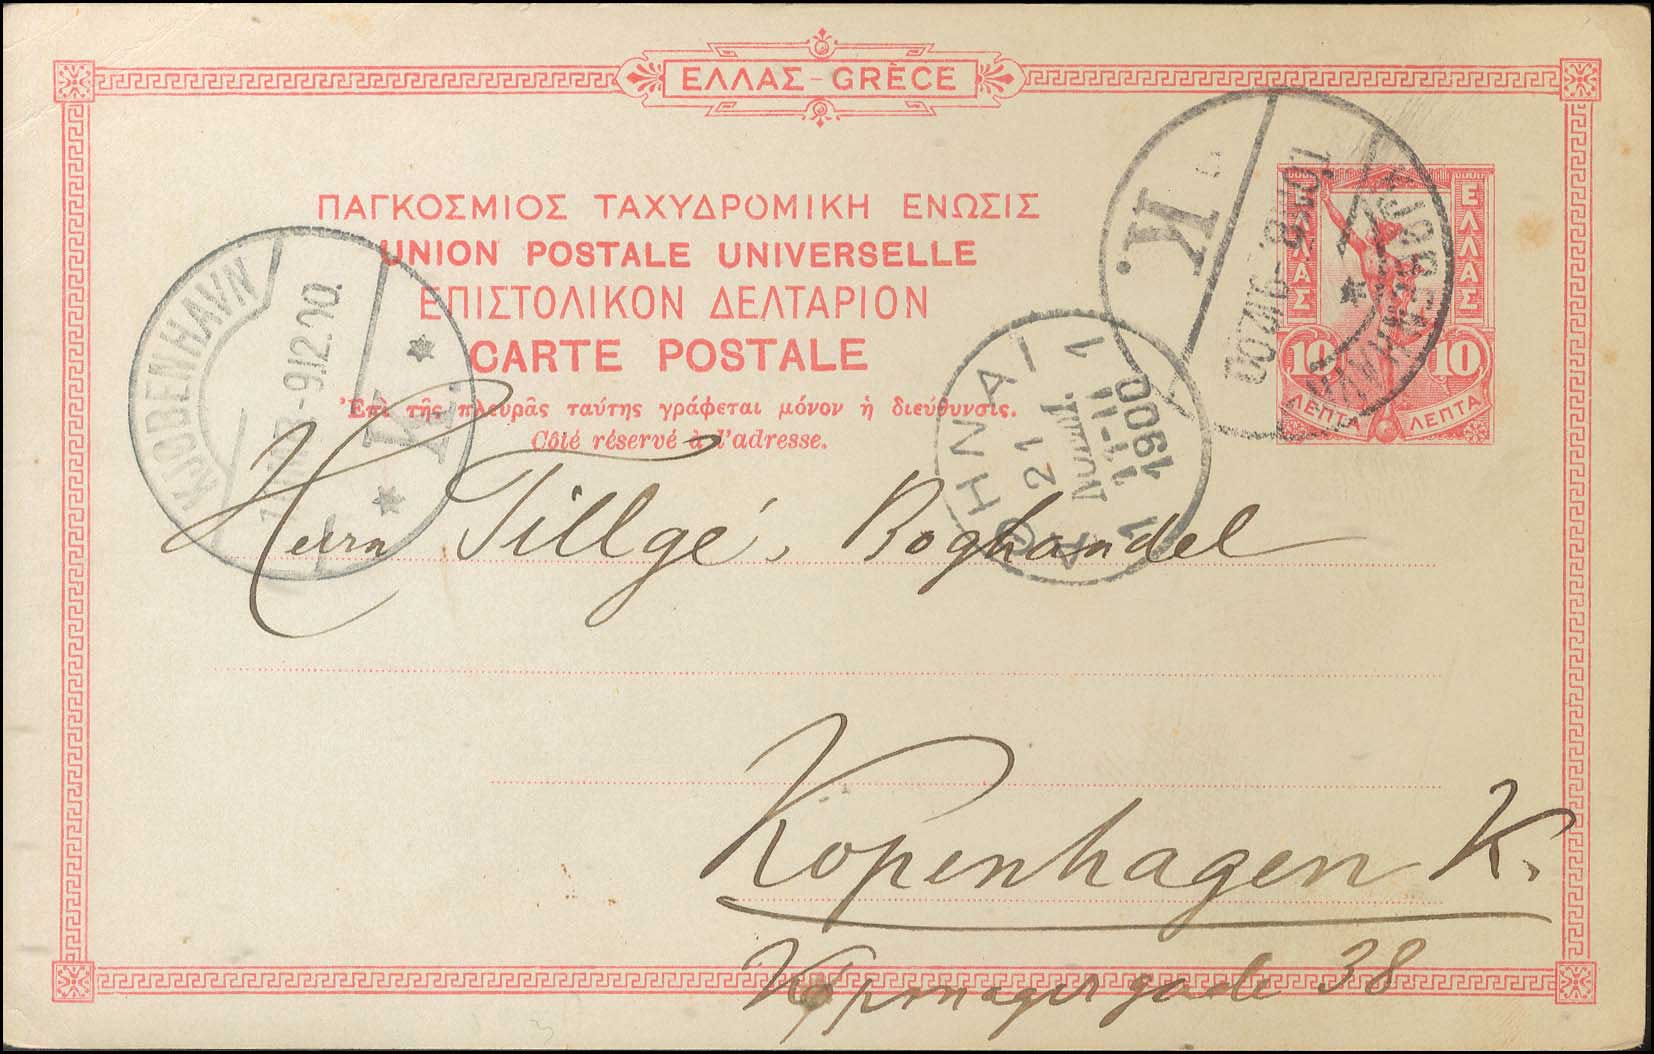 ΕΛΛΑΣ - GRÈCE
ΠΑΓΚΟΣΜΙΟΣ ΤΑΧΥΔΡΟΜΙΚΗ ΕΝΩΣΙΣ
UNION POSTALE UNIVERSELLE
ΕΠΙΣΤΟΛΙΚΟΝ ΔΕΛΤΑΡΙΟΝ
CARTE POSTALE
Ἐπὶ τῆς πλευρᾶς ταύτης γράφεται μόνον ἡ διεύθυνσις.
Côté réservé à l'adresse.
ΕΛΛΑΣ ΕΛΛΑΣ
10 10
ΛΕΠΤΑ ΛΕΠΤΑ
KJØBENHAVN
9.12.00.
K.
KJØBENHAVN
K.
ΑΘΗΝΑΙ
21
1900
Herrn Tillgé, Boghandel
Kopenhagen K.
Kjøpmagergade 38